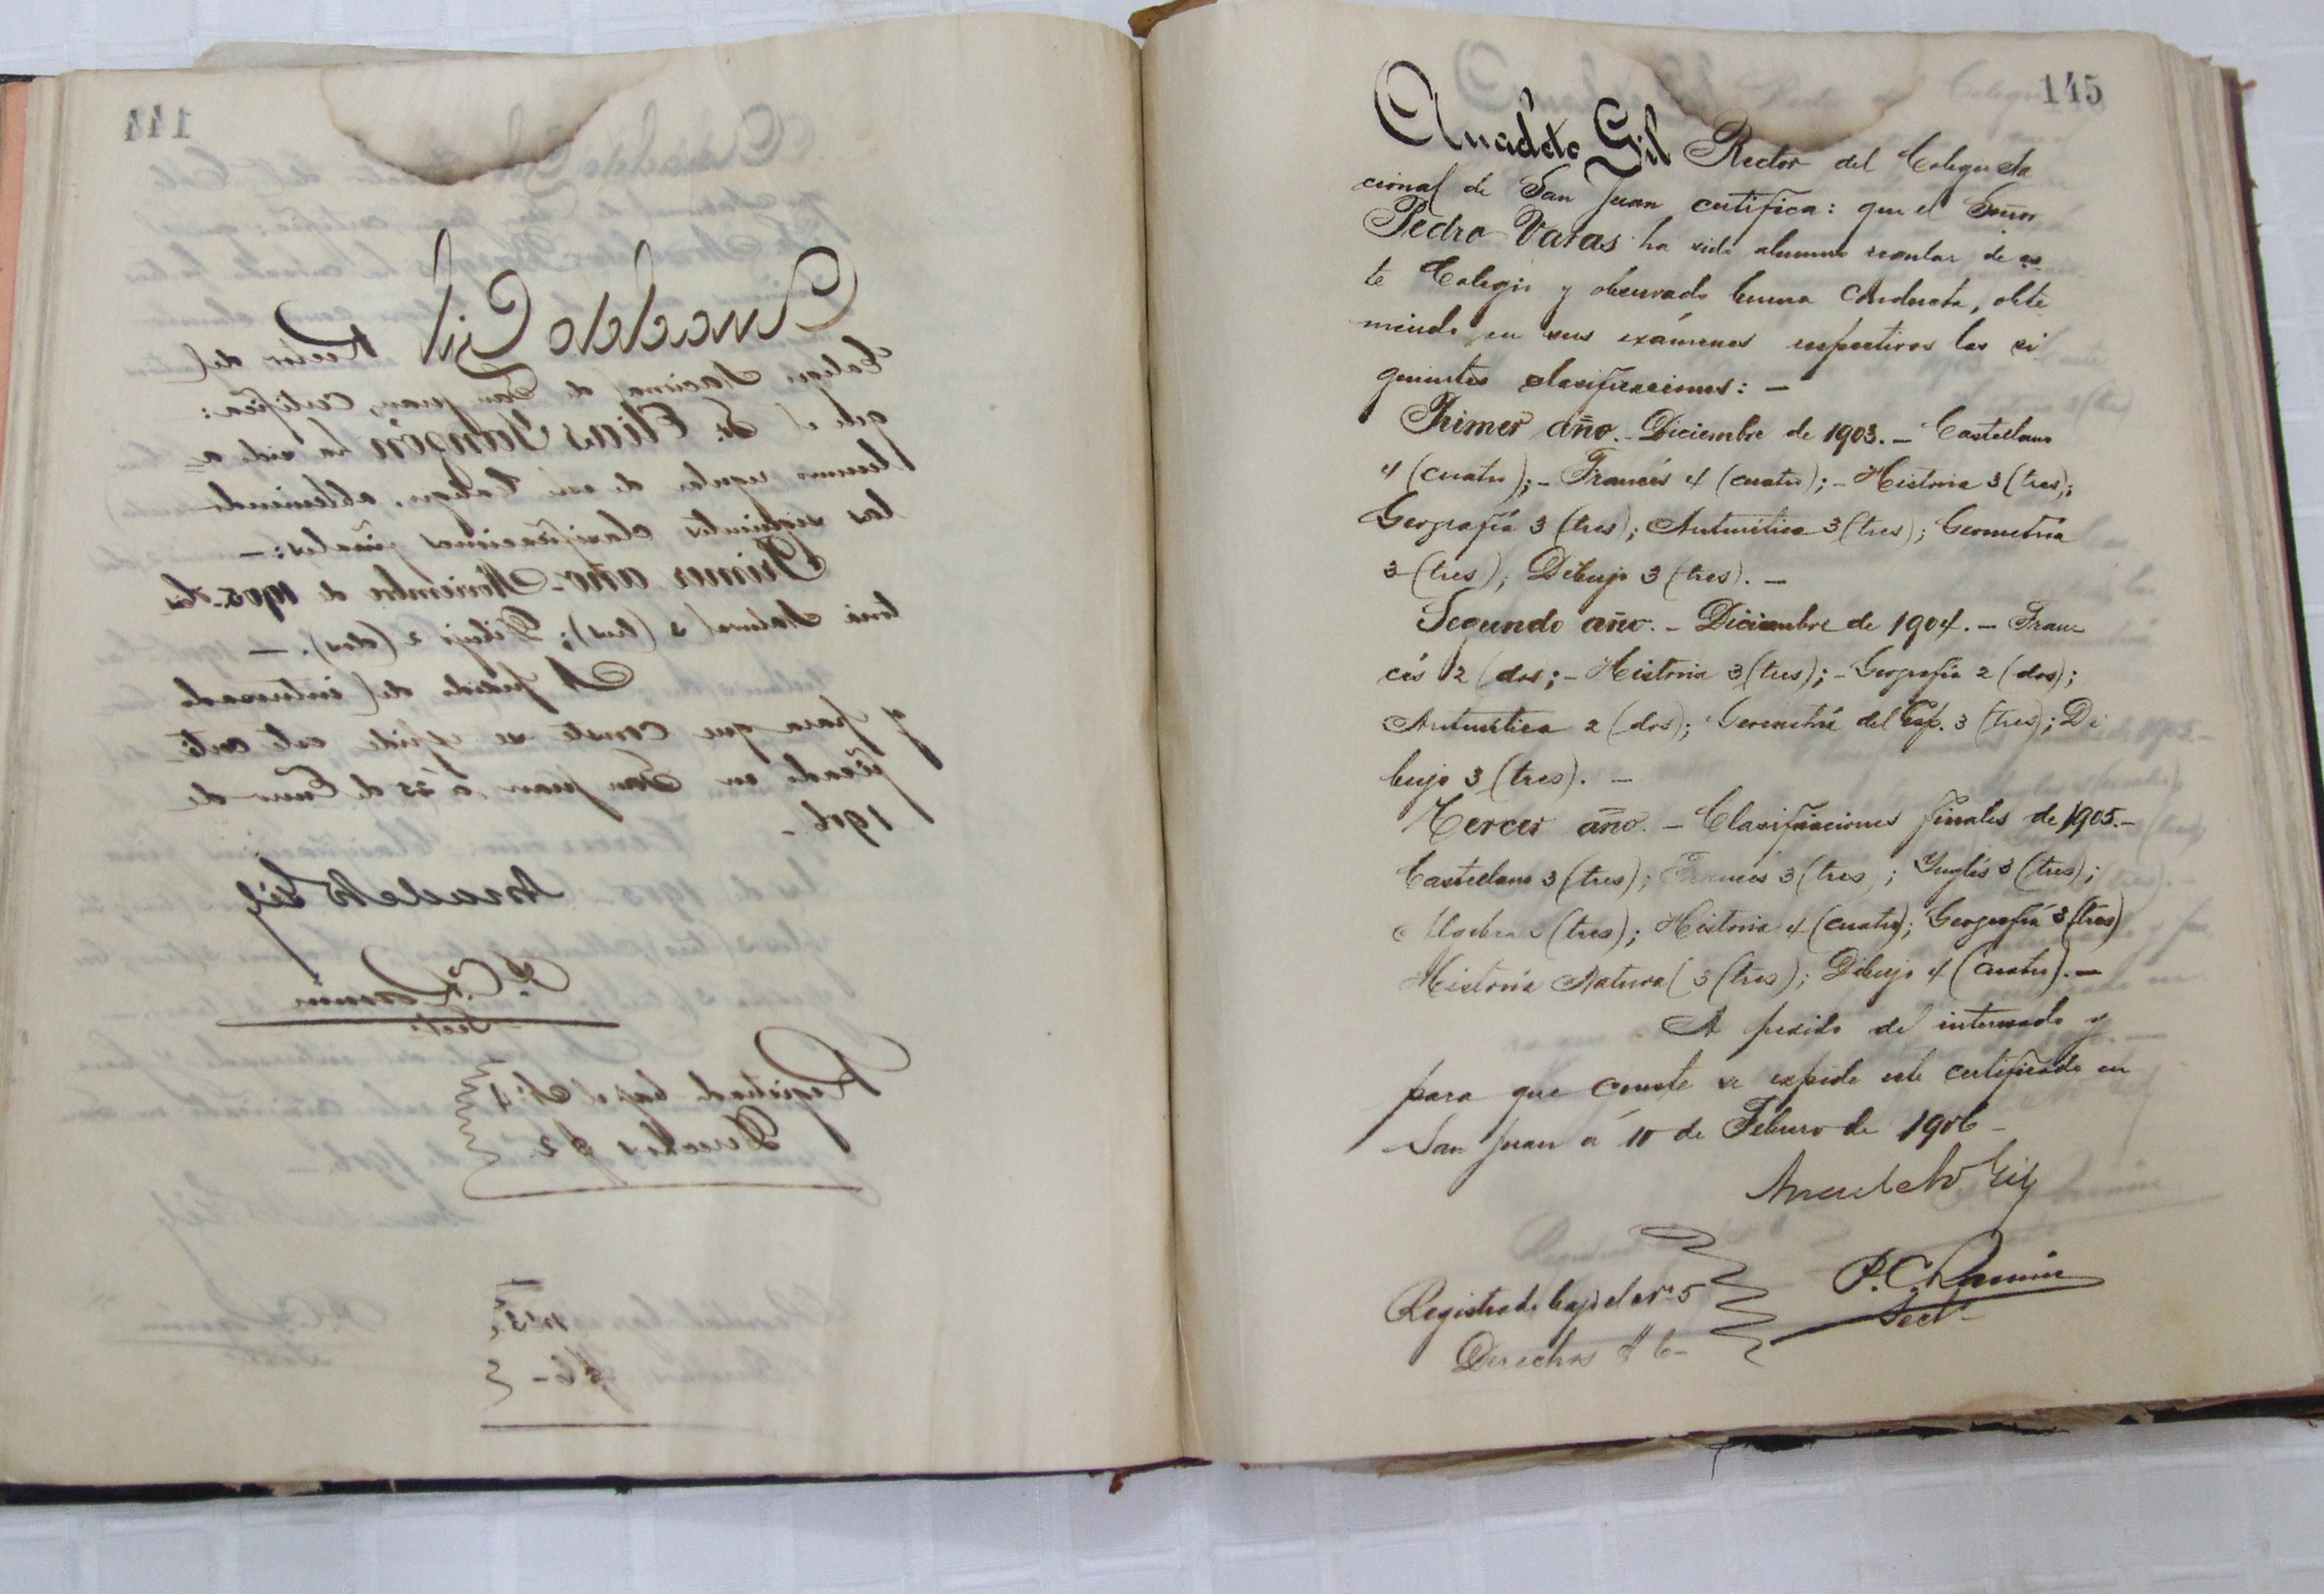 144
Anacleto Gil Rector del
Colegio Nacional de San Juan, Certifica:
que el Sr. Elias Yanzón ha sido a=
lumno regular de este Colegio, obteniendo
las siguientes clasificaciones finales: —
Primer año - Noviembre de 1905 - His
toria Natural 3 (tres); Dibujo 2 (dos). —
A pedido del interesado
y para que conste se expide este certi
ficado en San Juan, á 25 de Enero de
1906 -
Anacleto Gil
P. C. Ramirez
Sect.
Registrado bajo el Nº 4
Derechos $ 2
Nº 5
$ 6 -
145
Anacleto Gil Rector del Colegio Na
cional de San Juan certifica: que el Señor
Pedro Varas ha sido alumno regular de es
te Colegio y observado buena conducta, obte
niendo en sus exámenes respectivos las si
guientes clasificaciones: —
Primer año. - Diciembre de 1903. - Castellano
4 (cuatro); - Francés 4 (cuatro); - Historia 3 (tres);
Geografía 3 (tres); Aritmética 3 (tres); Geometría
3 (tres); Dibujo 3 (tres). —
Segundo año. - Diciembre de 1904. - Fran=
cés 2 (dos; - Historia 3 (tres); - Geografía 2 (dos);
Aritmética 2 (dos); Geometría del Esp. 3 (tres); Di
bujo 3 (tres). —
Tercer año. - Clasificaciones finales de 1905. -
Castellano 3 (tres); Francés 3 (tres); Inglés 3 (tres);
Algebra 3 (tres); Historia 4 (cuatro); Geografía 3 (tres)
Historia Natural 3 (tres); Dibujo 4 (cuatro). —
A pedido del interesado y
para que conste se expide este certificado en
San Juan á 10 de Febrero de 1906 -
Anacleto Gil
P. C. Ramirez
Sect.
Registrado bajo el Nº 5
Derechos $ 6 -